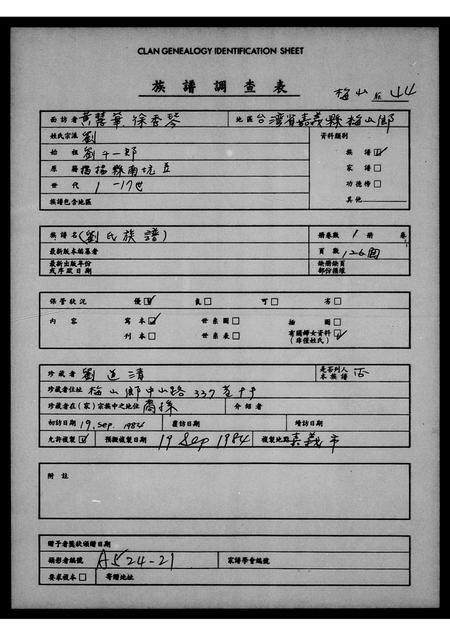 CLAN GENEALOGY IDENTIFICATION SHEET
族譜調查表
梅山 44
面訪者 黃慧華, 徐香琴 地區 台灣省嘉義縣梅山鄉
姓氏宗派 劉 資料類別
始祖 劉千一郎 族譜☑
原籍 揭揚縣南坑 家譜□
世代 1-17世 功德榜□
族譜包含地區 其他
族譜名 (劉氏族譜) 冊卷數 1 冊 卷
最新版本編纂者 頁數 126
最新出版年份或序跋日期 缺冊缺頁部份損壞
保管狀況 優☑ 良□ 可□ 劣□
內容 寫本☑ 世系圖□ 插圖□ 有關婦女資料(非僅姓氏)☑
刊本□ 世系表□
珍藏者 劉道清 是否列入本族譜 否
珍藏者住址 梅山鄉中山路337
珍藏者在(家)宗族中之地位 裔孫 介紹者
初訪日期 19. Sep. 1984 覆訪日期 續訪日期
允許複製☑ 預擬複製日期 19 Sep 1984 複製地點 嘉義市
附註
贈予者獎狀頒贈日期
攝影者編號 A524-21 家譜學會編號
要求複本□ 寄贈地址